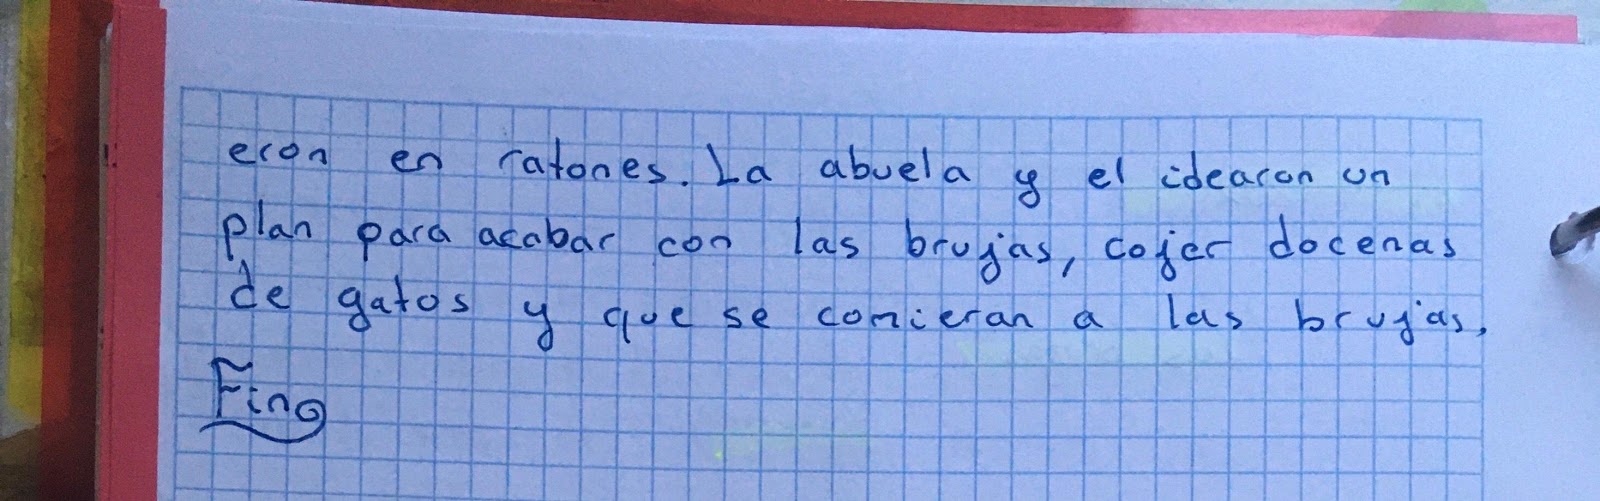 eron en ratones. La abuela y el idearon un
plan para acabar con las brujas, cojer docenas
de gatos y que se comieran a las brujas,
Fin